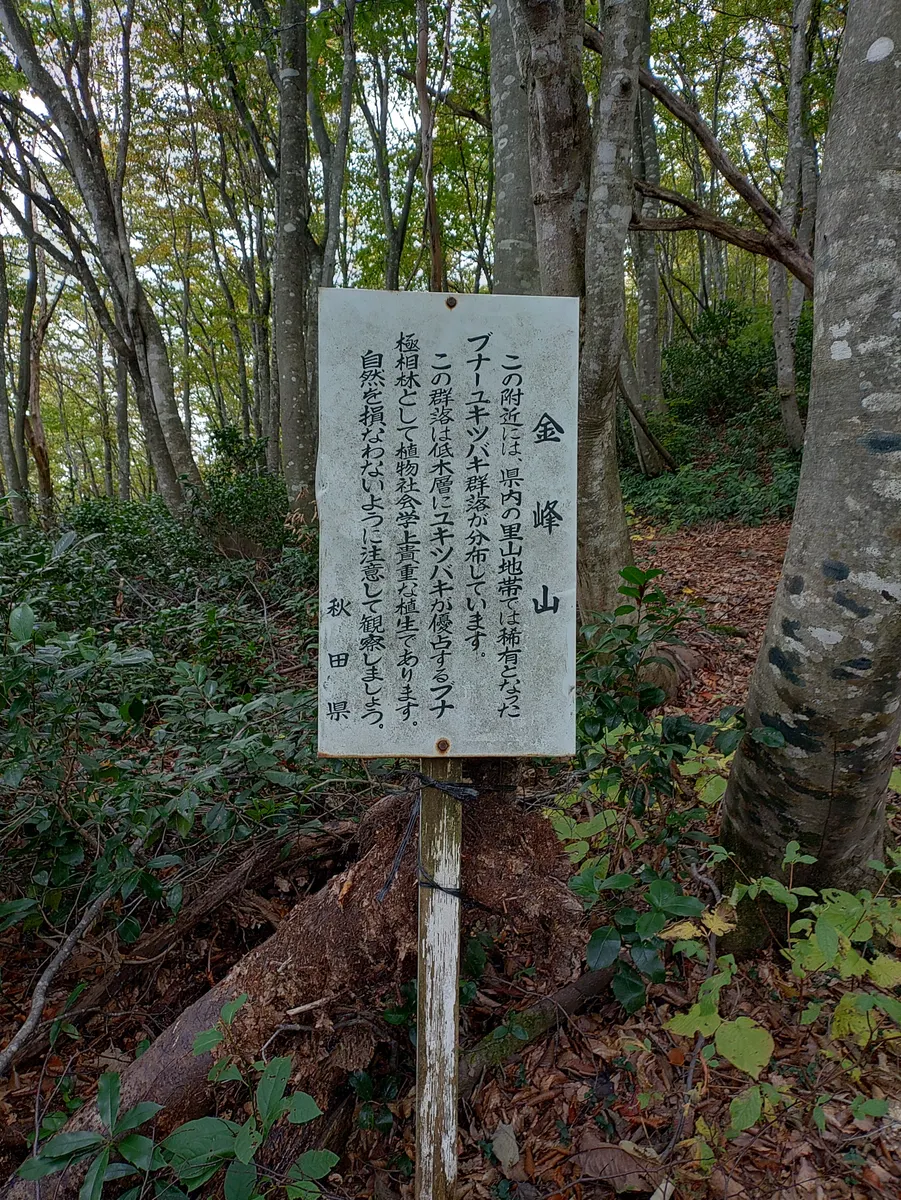 金峰山
この附近には、県内の里山地帯では稀有となった
ブナーユキツバキ群落が分布しています。
この群落は低木層にユキツバキが優占するブナ
極相林として植物社会学上貴重な植生であります。
自然を損なわないように注意して観察しましょう。
秋田県